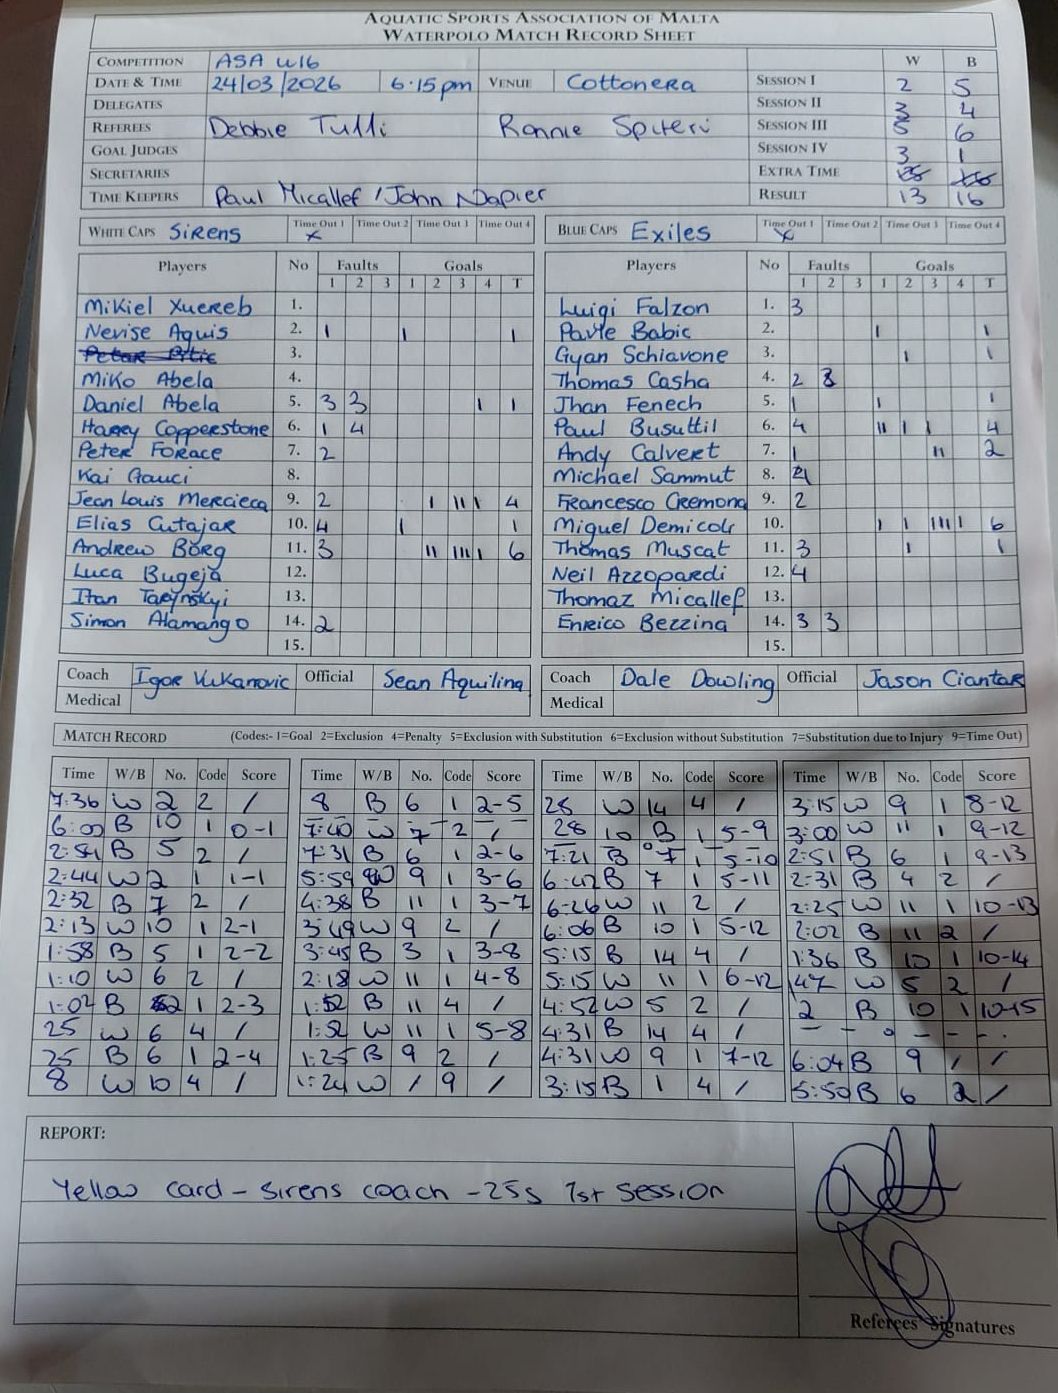 AQUATIC SPORTS ASSOCIATION OF MALTA
WATERPOLO MATCH RECORD SHEET
COMPETITION ASA U16 W B
DATE & TIME 24/03/2026 6:15pm VENUE Cottonera SESSION I 2 5
DELEGATES SESSION II 3 4
REFEREES Debbie Tulli Ronnie Spiteri SESSION III 5 6
GOAL JUDGES SESSION IV 3 1
SECRETARIES EXTRA TIME
TIME KEEPERS Paul Micallef / John Napier RESULT 13 16
WHITE CAPS Sirens Time Out 1 x Time Out 2 Time Out 3 Time Out 4
BLUE CAPS Exiles Time Out 1 x Time Out 2 Time Out 3 Time Out 4
Players No Faults Goals
1 2 3 1 2 3 4 T
Mikiel Xuereb 1.
Nevise Aquis 2. 1 1 1
3.
Miko Abela 4.
Daniel Abela 5. 3 3 1 1
Harry Copperstone 6. 1 4
Peter Forace 7. 2
Kai Gauci 8.
Jean Louis Mercieca 9. 2 1 111 1 4
Elias Cutajar 10. 4 1 1
Andrew Borg 11. 3 11 111 1 6
Luca Bugeja 12.
Itan Tarynskyi 13.
Simon Alamango 14. 2
15.
Players No Faults Goals
1 2 3 1 2 3 4 T
Luigi Falzon 1. 3
Pavle Babic 2. 1 1
Gyan Schiavone 3. 1 1
Thomas Casha 4. 2 3
Jhan Fenech 5. 1 1 1
Paul Busuttil 6. 4 11 1 1 4
Andy Calvert 7. 1 11 2
Michael Sammut 8.
Francesco Cremona 9. 2
Miguel Demicoli 10. 1 1 1111 6
Thomas Muscat 11. 3 1 1
Neil Azzopardi 12. 4
Thomaz Micallef 13.
Enrico Bezzina 14. 3 3
15.
Coach Igor Vukanovic Official Sean Aquilina
Medical
Coach Dale Dowling Official Jason Ciantar
Medical
MATCH RECORD (Codes:- 1=Goal 2=Exclusion 4=Penalty 5=Exclusion with Substitution 6=Exclusion without Substitution 7=Substitution due to Injury 9=Time Out)
Time W/B No. Code Score
7:36 W 2 2 /
6:00 B 10 1 0-1
2:51 B 5 2 /
2:44 W 2 1 1-1
2:32 B 7 2 /
2:13 W 10 1 2-1
1:58 B 5 1 2-2
1:10 W 6 2 /
1:02 B 2 1 2-3
25 W 6 4 /
25 B 6 1 2-4
8 W 10 4 /
Time W/B No. Code Score
8 B 6 1 2-5
7:40 W 7 2 /
7:31 B 6 1 2-6
5:59 W 9 1 3-6
4:38 B 11 1 3-7
3:49 W 9 2 /
3:45 B 3 1 3-8
2:18 W 11 1 4-8
1:52 B 11 4 /
1:52 W 11 1 5-8
1:25 B 9 2 /
1:24 W / 9 /
Time W/B No. Code Score
28 W 14 4 /
28 10 B 1 5-9
7:21 B 7 1 5-10
6:42 B 7 1 5-11
6:26 W 11 2 /
6:06 B 10 1 5-12
5:15 B 14 4 /
5:15 W 11 1 6-12
4:52 W 5 2 /
4:31 B 14 4 /
4:31 W 9 1 7-12
3:15 B 1 4 /
Time W/B No. Code Score
3:15 W 9 1 8-12
3:00 W 11 1 9-12
2:51 B 6 1 9-13
2:31 B 4 2 /
2:25 W 11 1 10-13
2:02 B 11 2 /
1:36 B 10 1 10-14
47 W 5 2 /
2 B 10 1 10-15
6:04 B 9 / /
5:50 B 6 2 /
REPORT:
Yellow card - Sirens coach - 25s 1st session
Referees' Signatures